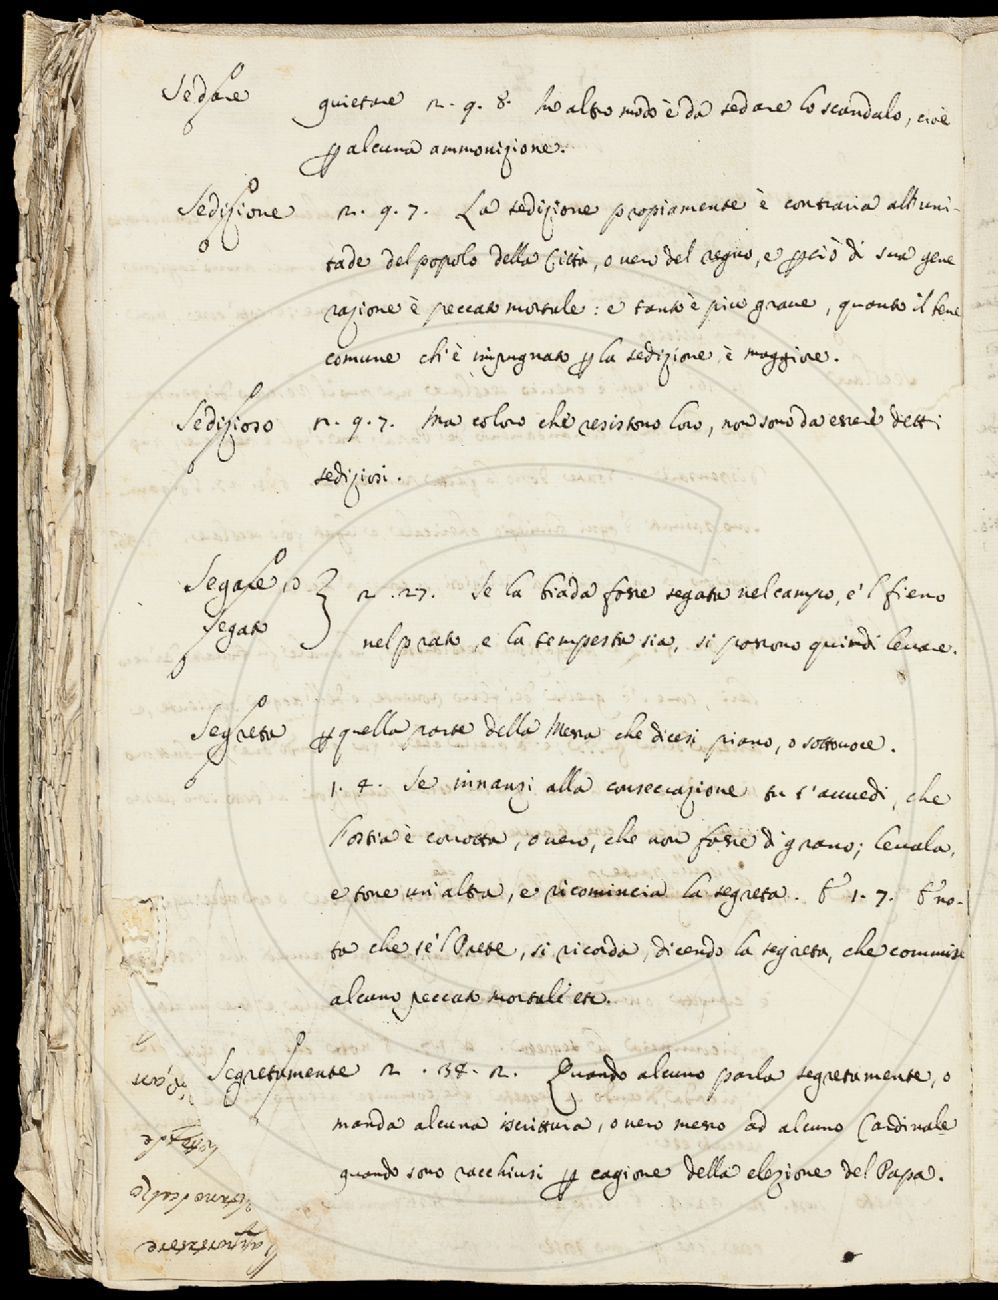 Sedare quietare 2. 9. 8. In altro modo è da sedare lo scandalo, cioè
ꝑ alcuna ammonizione.
Sedizione 2. 9. 7. La sedizione propiamente è contraria all'uni-
tade del popolo della Città, o vero del regno, e ꝑciò di sua gene
razione è peccato mortale: e tanto è piu graue, quanto il bene
comune ch'è impugnato ꝑ la sedizione, è maggiore.
Sedizioso 2. 9. 7. Ma coloro che resistono loro, non sono da essere detti
sediziosi.
Segare, o 2. 27. Se la biada fosse segata nel campo, e 'l fieno
Segato nel prato, e la tempesta sia, si possono quindi leuare.
Segreta ꝑ quella parte della Messa che dicesi piano, o sottouoce.
1. 4. Se innanzi alla consecrazione tu t'auuedi, che
l'ostia è corrotta, o uero, che non fosse di grano; leuala,
e tone un'altra, e ricomincia la segreta. E 1. 7. E no-
ta che se 'l Prete, si ricorda, dicendo la segreta, che commise
alcuno peccato mortale etc.
Segretamente 2. 34. 2. Quando alcuno parla segretamente, o
manda alcuna iscrittura, o uero messo ad alcuno Cardinale
quando sono racchiusi ꝑ cagione della elezione del Papa.